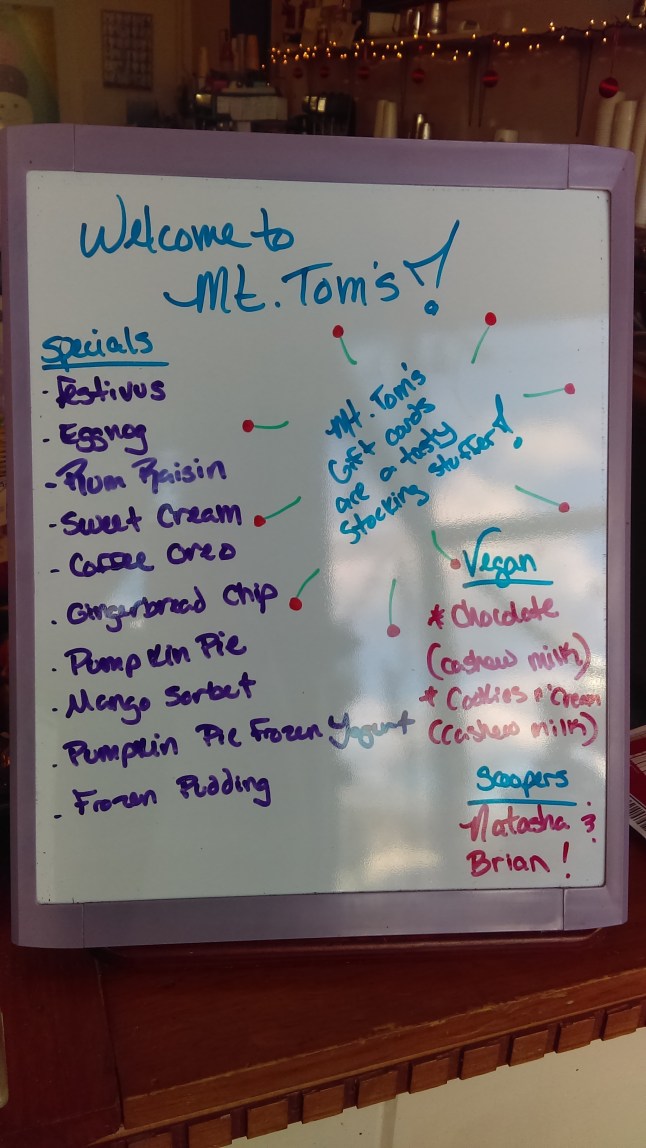 Welcome to
Mt. Tom's!
Specials
- Festivus
- Eggnog
- Rum Raisin
- Sweet Cream
- Coffee Oreo
- Gingerbread Chip
- Pumpkin Pie
- Mango Sorbet
- Pumpkin Pie Frozen Yogurt
- Frozen Pudding
Mt. Tom's
Gift cards
are a tasty
Stocking stuffer!
Vegan
* Chocolate
(cashew milk)
* Cookies n' Cream
(cashew milk)
Scoopers
Natasha &
Brian!